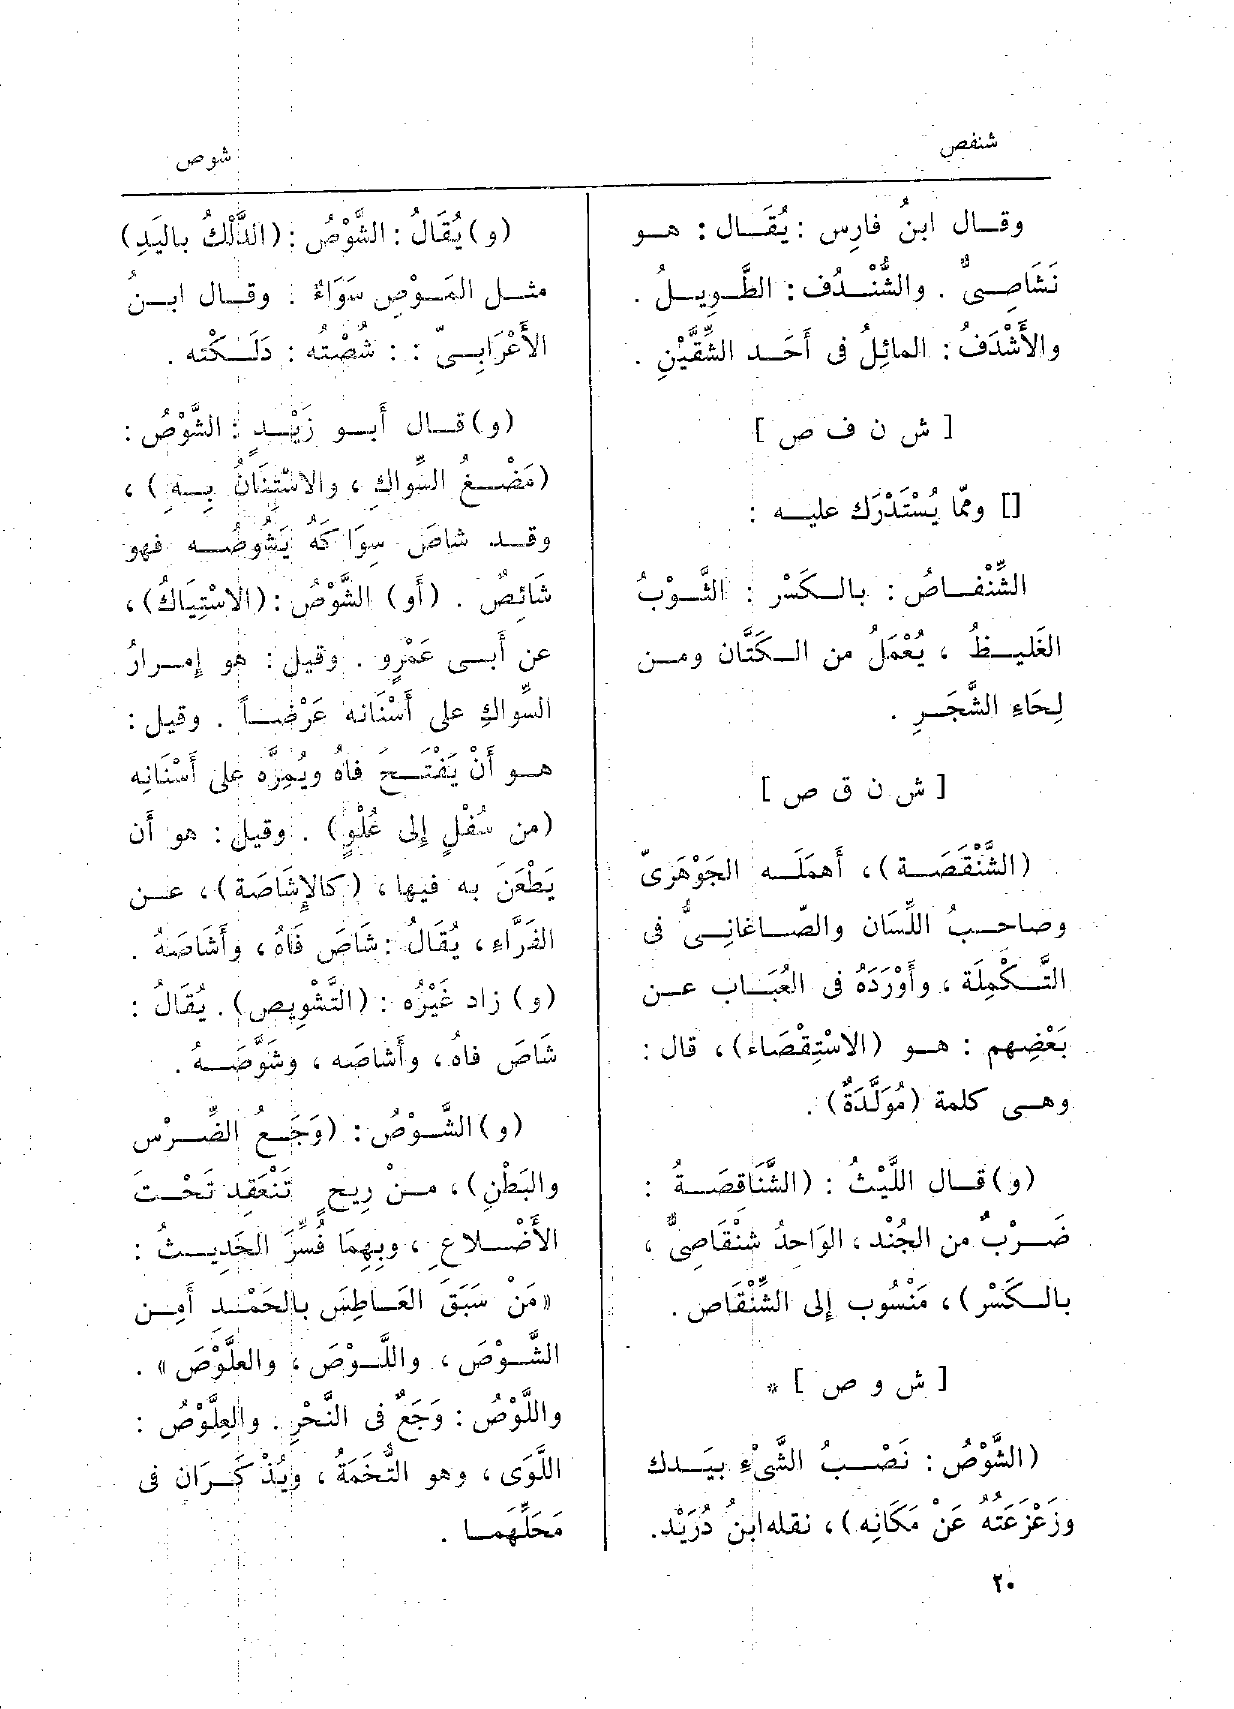 شنفص
شوص
وقال ابنُ فارِس : يُقَال : هو
نَشَاصِىٌّ . والشُّنْدُف : الطَّوِيلُ .
والأَشْدَفُ : المائِلُ فى أَحَد الشِّقَّيْنِ .
[ ش ن ف ص ]
[] وممّا يُسْتَدْرَك عليه :
الشِّنْفَاصُ : بالكَسْر : الثَّوْبُ
الغَلِيظُ ، يُعْمَلُ من الكَتَّان ومن
لِحَاءِ الشَّجَرِ .
[ ش ن ق ص ]
(الشَّنْقَصَة) ، أَهمَلَه الجَوْهَرىّ
وصاحبُ اللِّسَان والصّاغانِىُّ فى
التَّكْمِلَة ، وأَوْرَدَهُ فى العُبَاب عن
بَعْضِهم : هو (الاسْتِقْصَاء) ، قال :
وهى كلمة (مُوَلَّدَةٌ) .
(و) قال اللَّيْثُ : (الشَّنَاقِصَةُ :
ضَرْبٌ من الجُنْد ، الوَاحِدُ شِنْقَاصِىٌّ ،
بالكَسْر) ، مَنْسُوب إلى الشِّنْقَاص .
[ ش و ص ] *
(الشَّوْصُ : نَصْبُ الشَّىْءِ بيَدك
وزَعْزَعَتُهُ عَنْ مَكَانِه) ، نقله ابنُ دُرَيْد.
(و) يُقَالُ : الشَّوْصُ : (الدَّلْكُ باليَدِ)
مثل المَوْصِ سَوَاءٌ . وقال ابنُ
الأَعْرَابِىّ : : شُصْتُه : دَلَكْته .
(و) قال أَبو زَيْدٍ : الشَّوْصُ :
(مَضْغُ السِّواكِ ، والاسْتِنَانُ بِهِ) ،
وقد شاصَ سِوَاكَهُ يَشُوصُه فهو
شَائِصٌ . (أَو) الشَّوْصُ : (الاسْتِيَاكُ) ،
عن أَبى عَمْرٍو . وقيل : هو إِمرارُ
السِّواكِ على أَسْنَانه عَرْضاً . وقيل :
هو أَنْ يَفْتَحَ فاهُ ويُمِرَّه على أَسْنَانِه
(من سُفْلٍ إلى عُلْوٍ) . وقيل : هو أَن
يَطْعَنَ به فيها ، (كالإِشَاصَة) ، عن
الفَرَّاءِ ، يُقَالُ : شَاصَ فَاهُ ، وأَشَاصَهُ .
(و) زاد غَيْرُه : (التَّشْوِيص) . يُقَالُ :
شَاصَ فاهُ ، وأَشاصَه ، وشَوَّصَهُ .
(و) الشَّوْصُ : (وَجَع الضِّرْس
والبَطْنِ) ، منْ رِيحٍ تَنْعَقِد تَحْتَ
الأَضْلاعِ ، وبِهِمَا فُسِّرَ الحَدِيثُ :
«مَنْ سَبَقَ العَاطِسَ بالحَمْدِ أَمِن
الشَّوْصَ ، واللَّوْصَ ، والعِلَّوْصَ » .
واللَّوْصُ : وَجَعٌ فى النَّحْرِ . والعِلَّوْصُ :
اللَّوَى ، وهو التُّخمَةُ ، ويُذْكَرَان فى
مَحَلِّهما .
٢٠